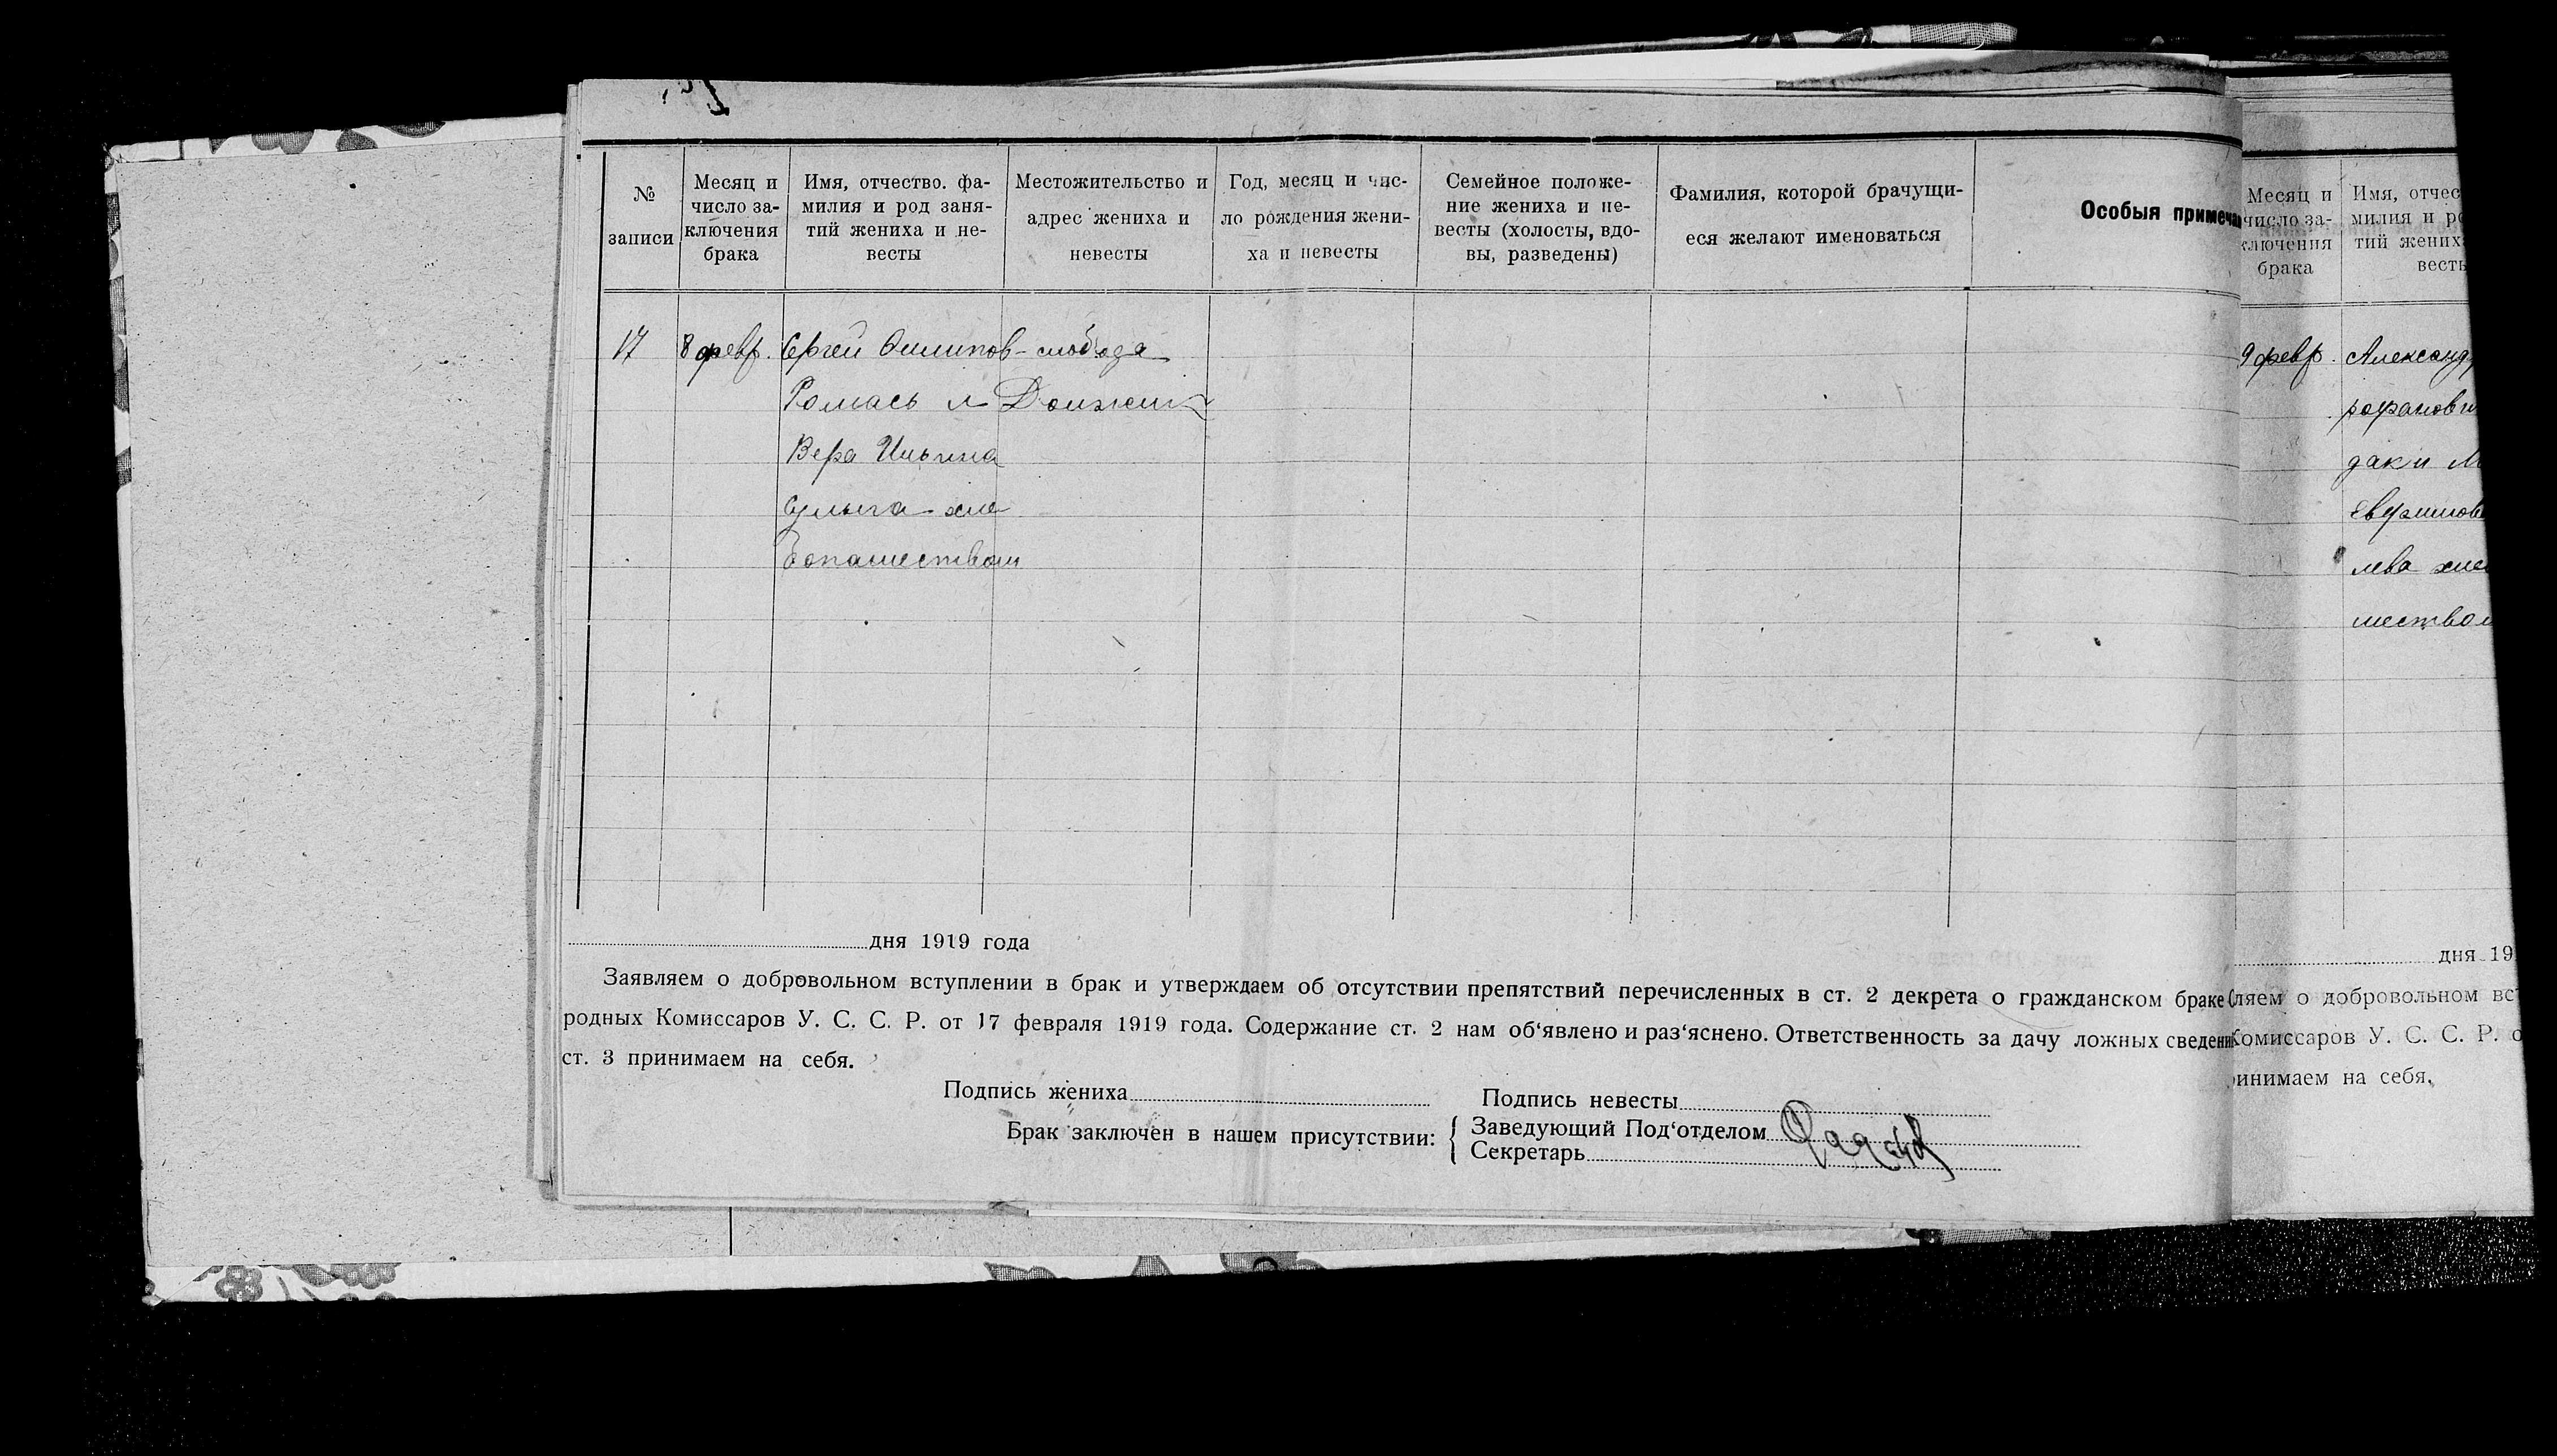 № записи
Месяц и число заключения брака
Имя, отчество. фамилия и род занятий жениха и невесты
Местожительство и адрес жениха и невесты
Год, месяц и число рождения жениха и невесты
Семейное положение жениха и невесты (холосты, вдовы, разведены)
Фамилия, которой брачущиеся желают именоваться
Особыя примеча
17 8 февр. Сергей слобода
Ромась и
Вера Ильина
хле
бопашеством
дня 1919 года
Заявляем о добровольном вступлении в брак и утверждаем об отсутствии препятствий перечисленных в ст. 2 декрета о гражданском браке
родных Комиссаров У. С. С. Р. от 17 февраля 1919 года. Содержание ст. 2 нам об‘явлено и раз‘яснено. Ответственность за дачу ложных сведени
ст. 3 принимаем на себя.
Подпись жениха
Подпись невесты
Брак заключен в нашем присутствии:
Заведующий Под‘отделом
Секретарь
Месяц и число заключения брака
Имя, отчес
милия и ро
тий жених
весть
9 февр. Александ
рофанови
дак и М
лева хле
шеством
дня 19
ляем о добровольном вс
Комиссаров У. С. С. Р. о
инимаем на себя.